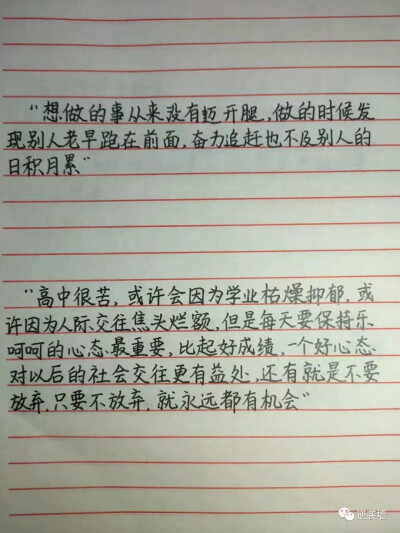 “想做的事从来没有迈开腿,做的时候发
现别人老早跑在前面,奋力追赶也不及别人的
日积月累”
“高中很苦,或许会因为学业枯燥抑郁,或
许因为人际交往焦头烂额,但是每天要保持乐
呵呵的心态最重要,比起好成绩,一个好心态
对以后的社会交往更有益处,还有就是不要
放弃,只要不放弃,就永远都有机会”